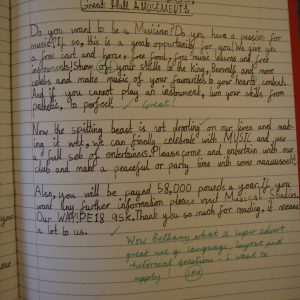 Great Hall AMUSEMENTS
Do you want to be a Musician? Do you have a passion for
music? If so, this is a great opportunity for you! We give you
a free cart and horse, free food, free music lessons and free
instruments! Show off your skills to the King, Barons and more
celebs and make music of your favourites to your hearts content.
And if you cannot play an instrument, turn your skills from
pathetic, to perfect! Great!
Now the spitting beast is not on our lives and
it wet, we can finally celebrate with MUSIC and use
a full set of entertainers. Please come and entertain with our
club and make a peaceful or party time with some
Also, you will be payed 58,000 pounds a year. If you
want any further information please visit Musical Studios
Our Thank you so much for reading, it means
a lot to us.
Wow Bethany, what a super advert
great use of language, layout and
rhetorical questions. I want to
apply!